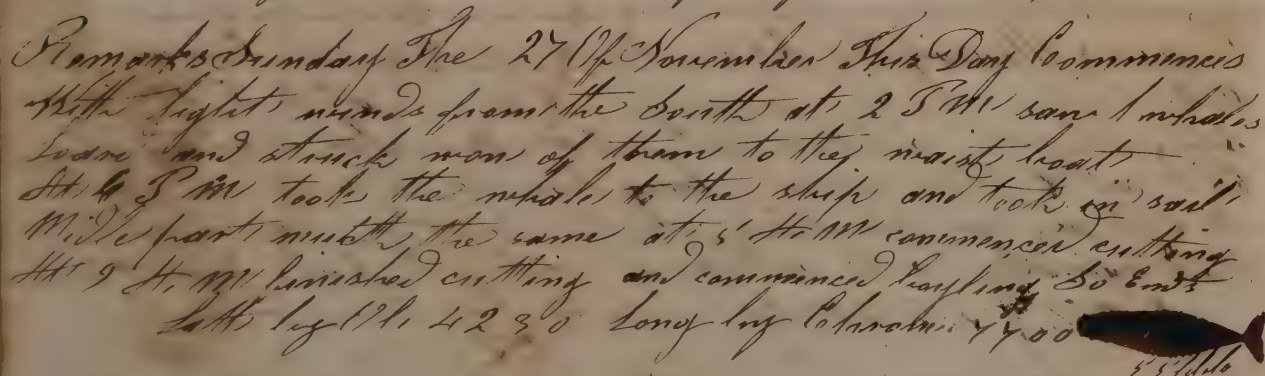 Remarks Sunday The 27 Of November This Day Commences
With light winds from the South at 2 P M saw whales
and struck won of them to they waist boat
At 6 P M took the whale to the ship and took in sail
Midle part mutch the same at 5 A. M commenced cutting
At 9 A. M finished cutting and commenced boyling So Ends
Latt by Ob. 42 30 Long by Chrom. 77 00
55 bbls